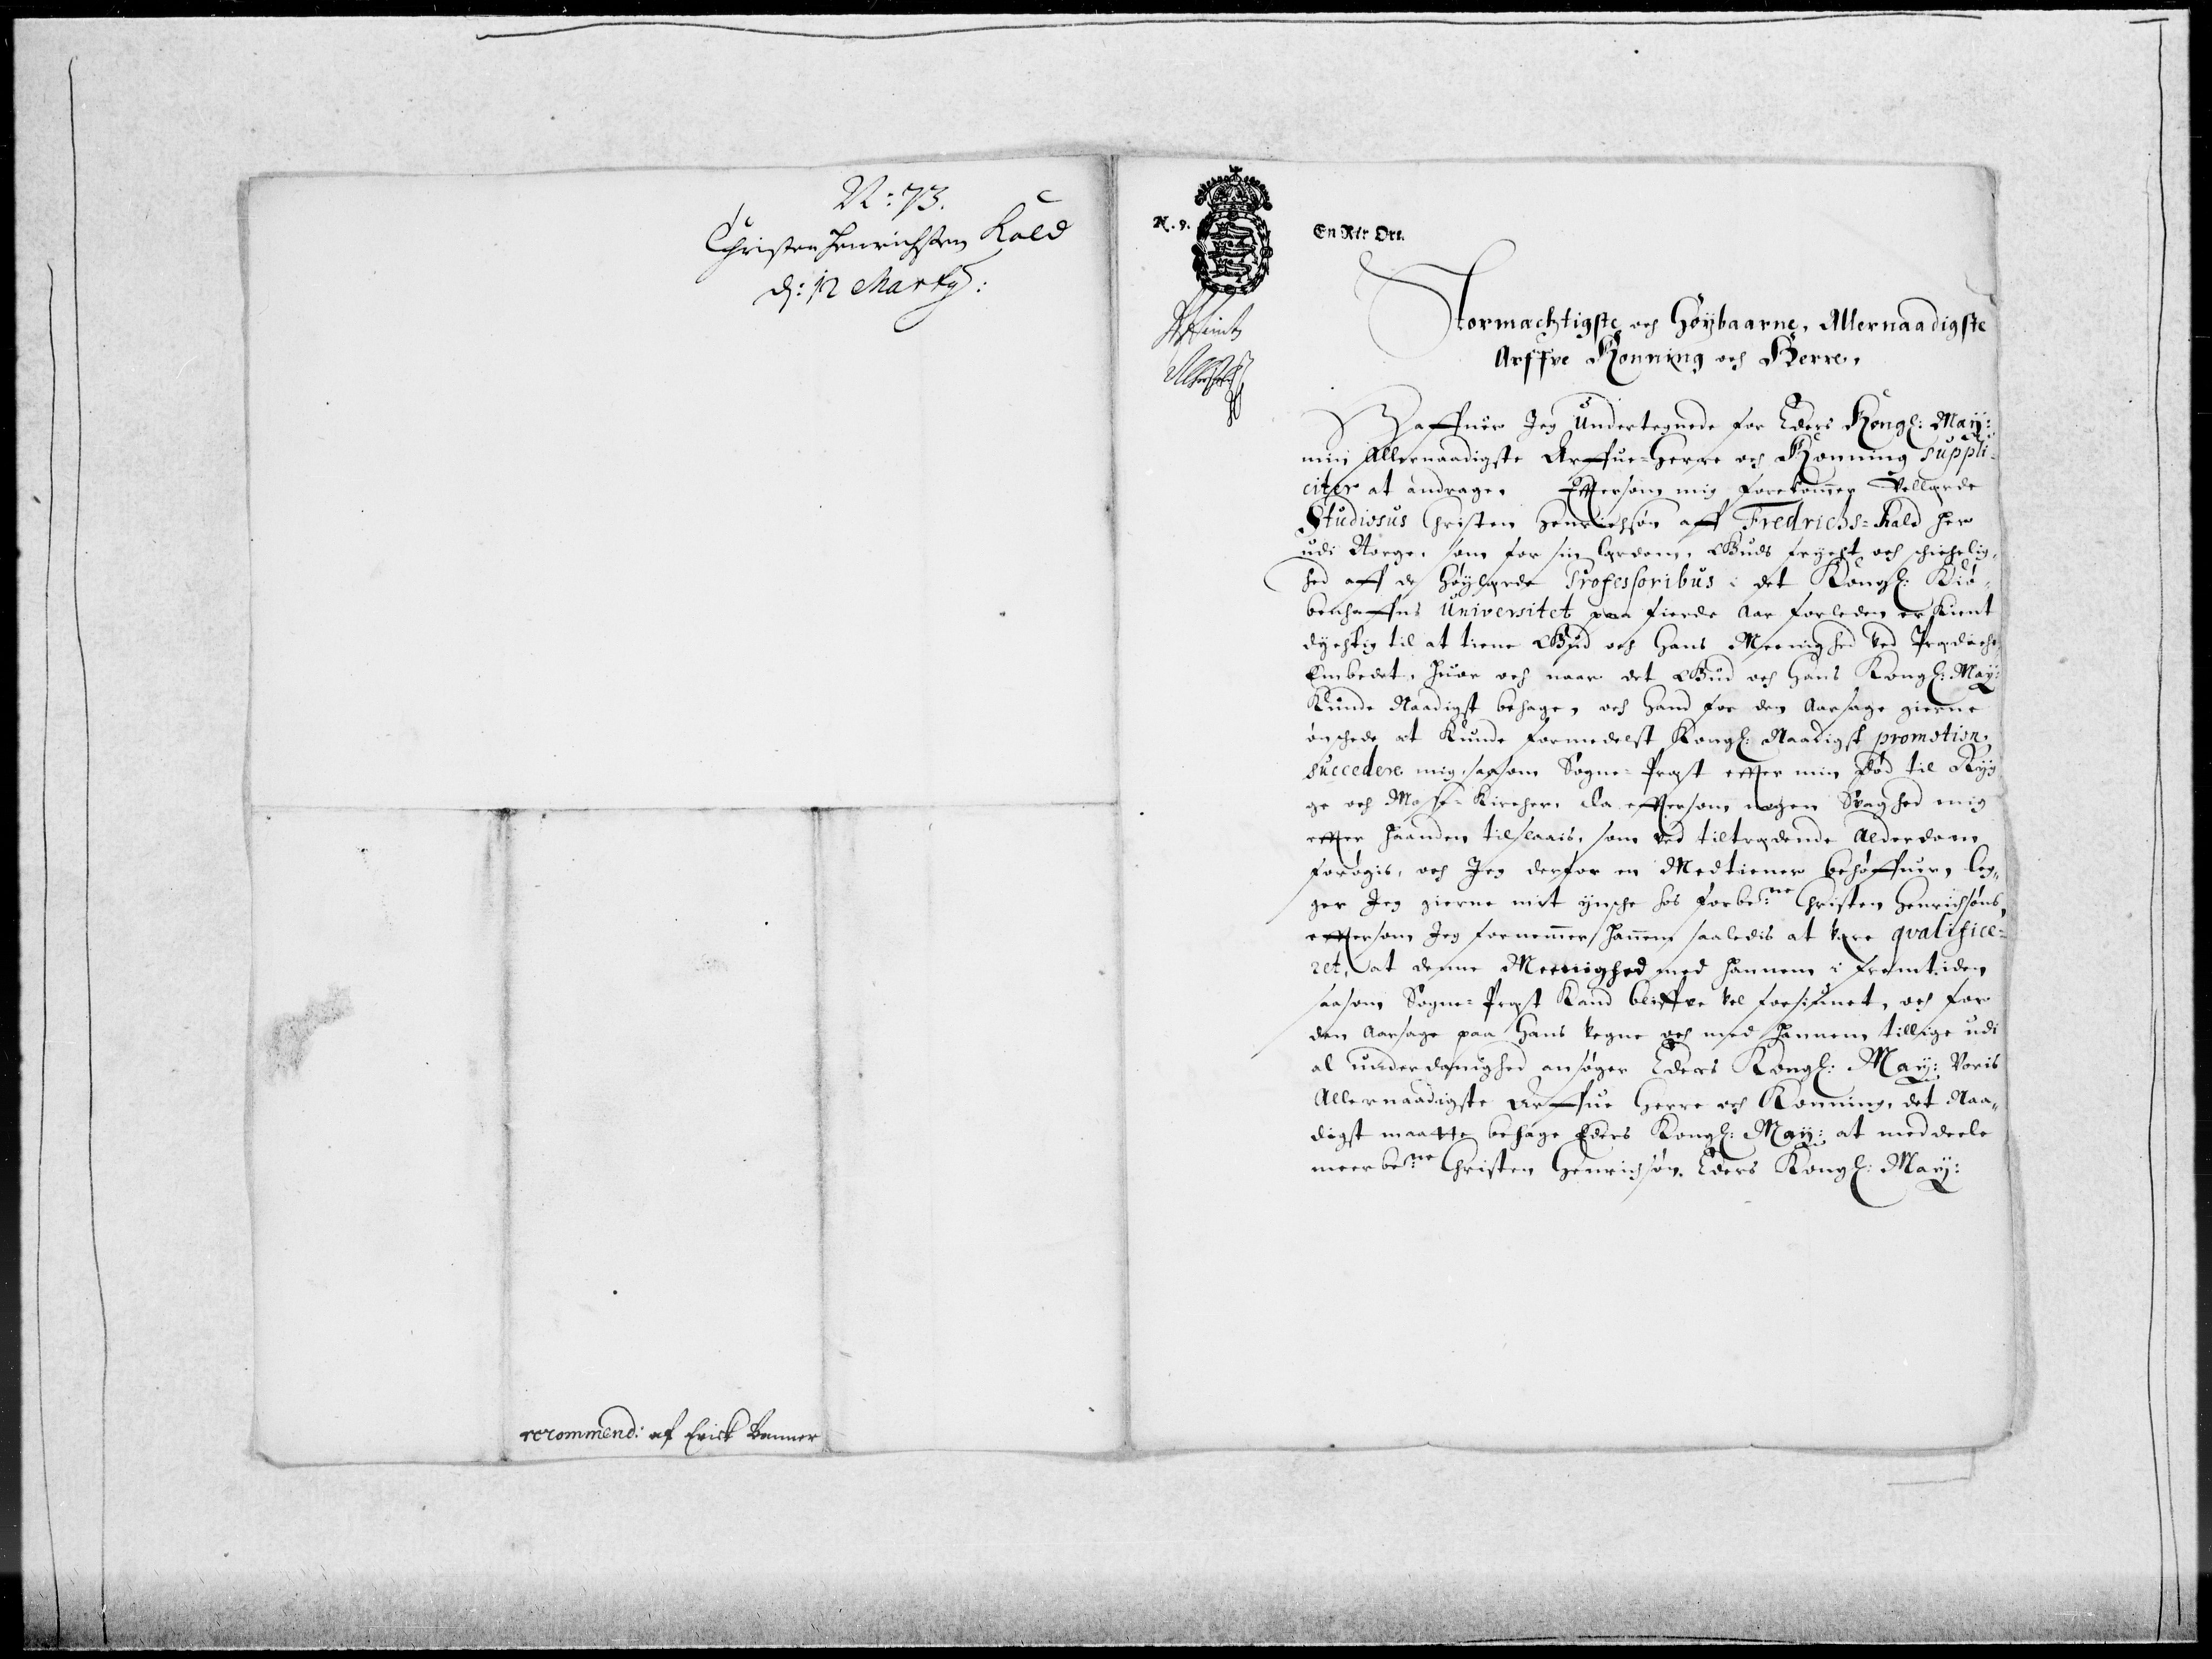 N: 73.
Christen Henrichsen Kold
d: 12 Marty:
recommend: af Erick Banner
N. 9.
En Rir Ort.
Stormachtigste och Høybaarne, Allernaadigste
Arffve Konning och Herre,
Jeg Undertegnede for Eders Kongl: May:
min Allernaadigste Arffue-Herre och Konning suppli-
citer at andrage, Effersom mig forekommer Vellærde
Studiosus Christen Henrichsøn aff Fredrichs-hald her
udi Norge, som for sin lerdom, Guds frycht och schichelig-
hed aff de Høylærde Professoribus i det Kongl: Kiø-
benhaffns Universitet paa fierde Aar forleden er kient
dychtig til at tiene Gud och Hans Meenighed ved Prædiche-
Embedet, huor och naar det Gud och Hans Kongl: May:
Kunde Naadigst behage, och Hand for den Aarsage gierne
ønschede at Kunde formedelst Kongl: Naadigst promotion,
succedere mig saasom Sogne-Præst effter min død til Ryg-
ge och Mosse-Kircher, da effersom nogen Svaghed mig
effter haanden tilslaais, som ved tiltrædende Alderdom
forøgis, och Jeg derfor en Medtiener behøffuer, leg-
ger Jeg gierne mit ynsche hos forbe:ne Christen Henrichsøns,
effersom Jeg fornemmer hannem saaledis at være qvalifice-
ret, at denne Meenighed med hannem i fremtiden
saasom Sogne-Præst Kand bliffve vel forsiunet, och for
den Aarsage paa Hans vegne och med hannem tillige udi
al underdanighed ansøger Eders Kongl: May: Voris
Allernaadigste Arffue Herre och Konning, det Naa-
digst maatte behage Eders Kongl: May: at meddeele
meerbe:ne Christen Henrichsøn Eders Kongl: May: